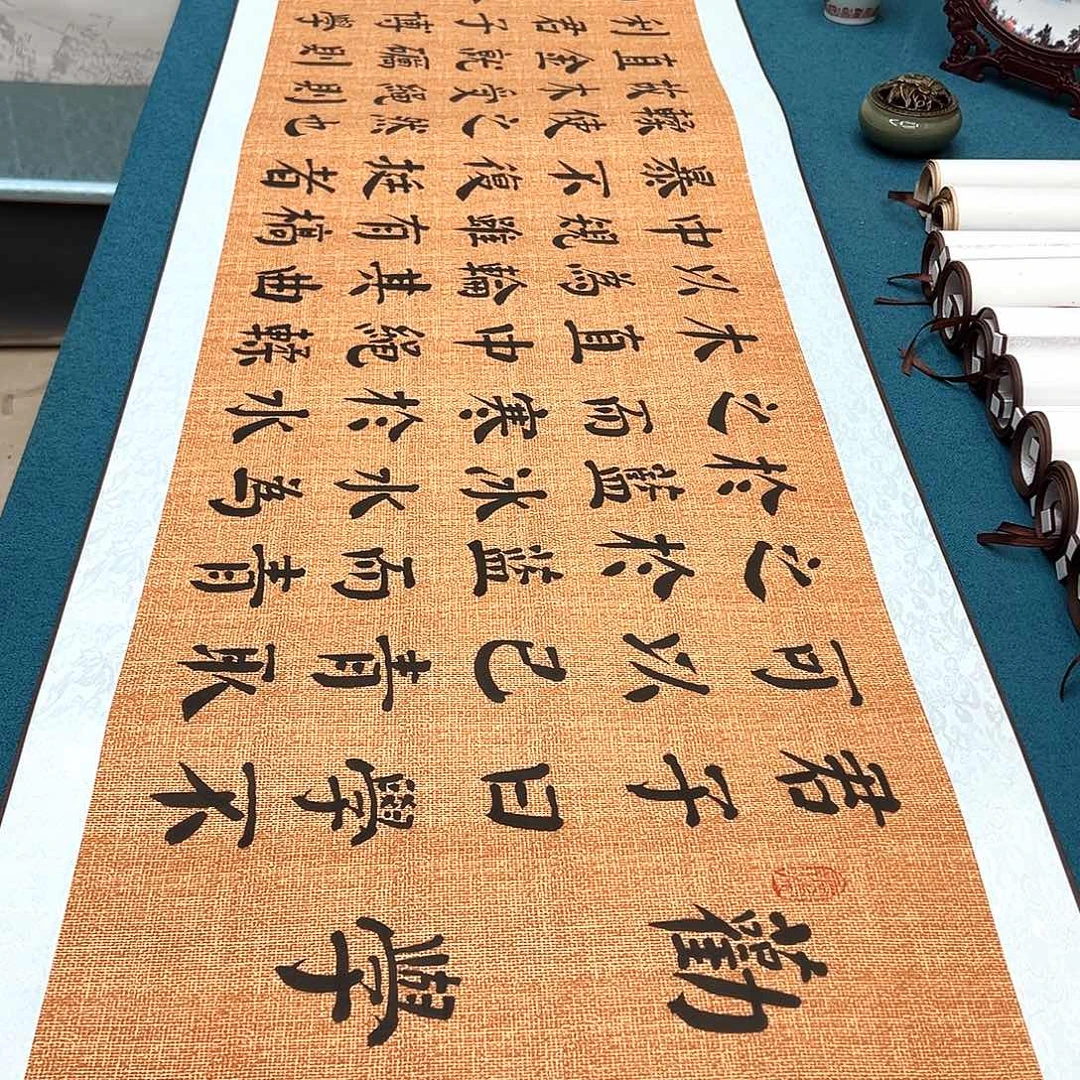 勸學
君子曰學不
可以已青取
之於藍而青
於藍冰水為
之而寒於水
木直中繩輮
以為輪其曲
中規雖有槁
暴不復挺者
輮使之然也
故木受繩則
直金就礪則
利君子博學